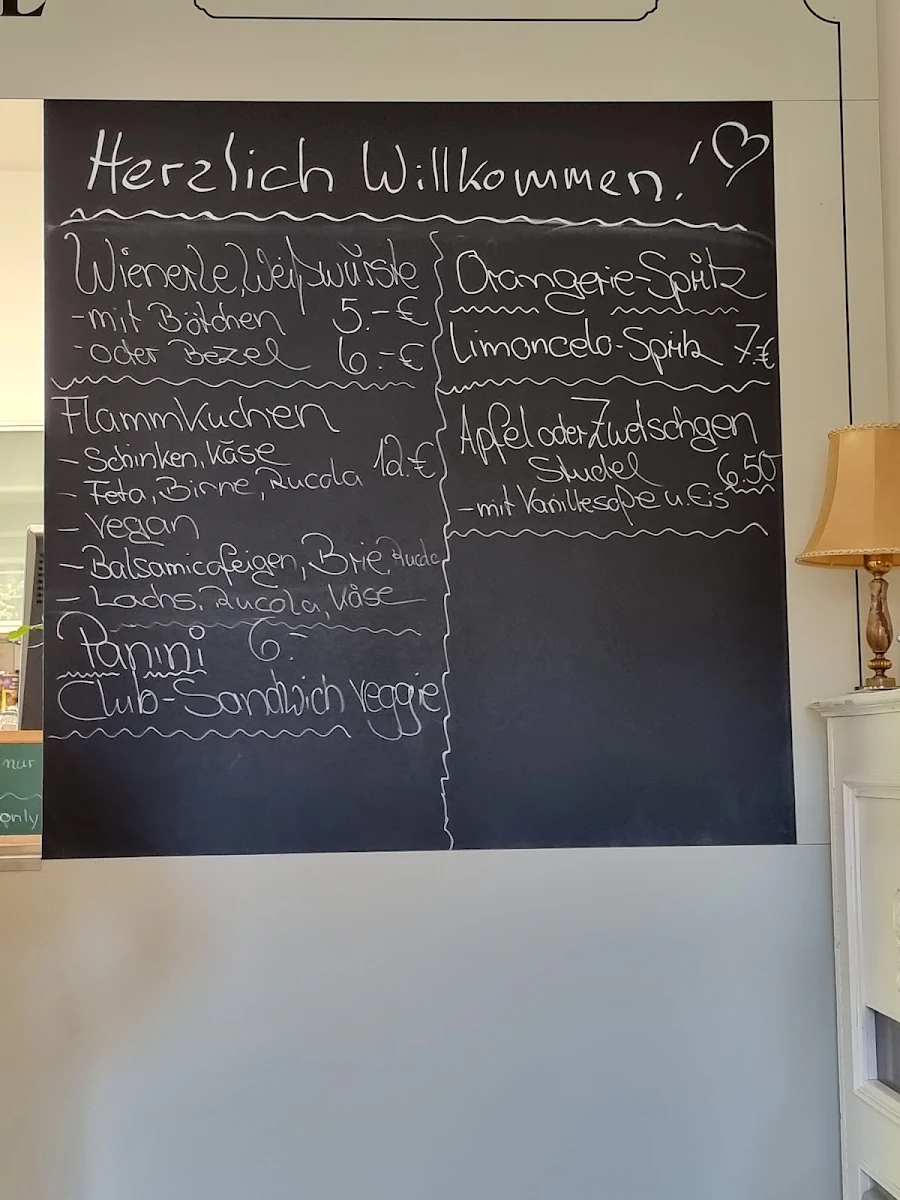 Herzlich Willkommen!
Wienerle, Weißwürste
- mit Bötchen 5.-€
- oder Bezel 6.-€
Flammkuchen
- Schinken, Käse 12.€
- Feta, Birne, Rucola
- Vegan
- Balsamicofeigen, Brie, Rucola
- Lachs, Rucola, Käse
Panini 6.-
Club-Sandwich veggie
Orangerie-Spritz
Limoncelo-Spritz 7.€
Apfel oder Zwetschgen
Studel 6.50
- mit Vanillesoße u. Eis
nur
only